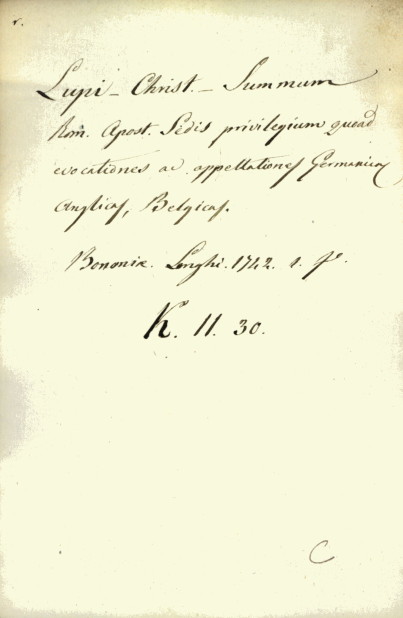 Lupi - Christ. - Summum
Rom. Apost. Sedis privilegium quoad
evocationes ac appellationes Germanicas
Anglicas, Belgicas.
Bononiæ. Longhi. 1742. 1. fo.
K. 11. 30.
C